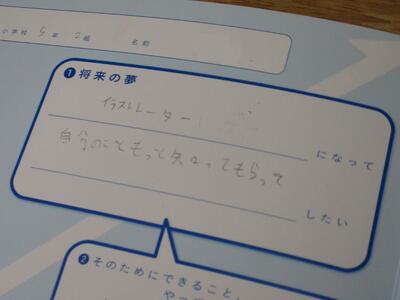 小学校 5年 2組 名前
❶将来の夢
イラストレーター
になって
自分のこともっと知ってもらって
したい
❷そのためにできること、
やっ